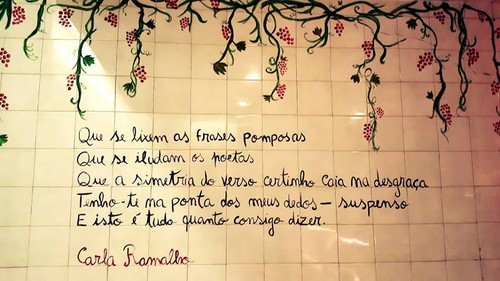 Que se lixem as frases pomposas
Que se iludam os poetas
Que a simetria do verso certinho caia na desgraça
Tenho-te na ponta dos meus dedos — suspenso
E isto é tudo quanto consigo dizer.
Carla Ramalho